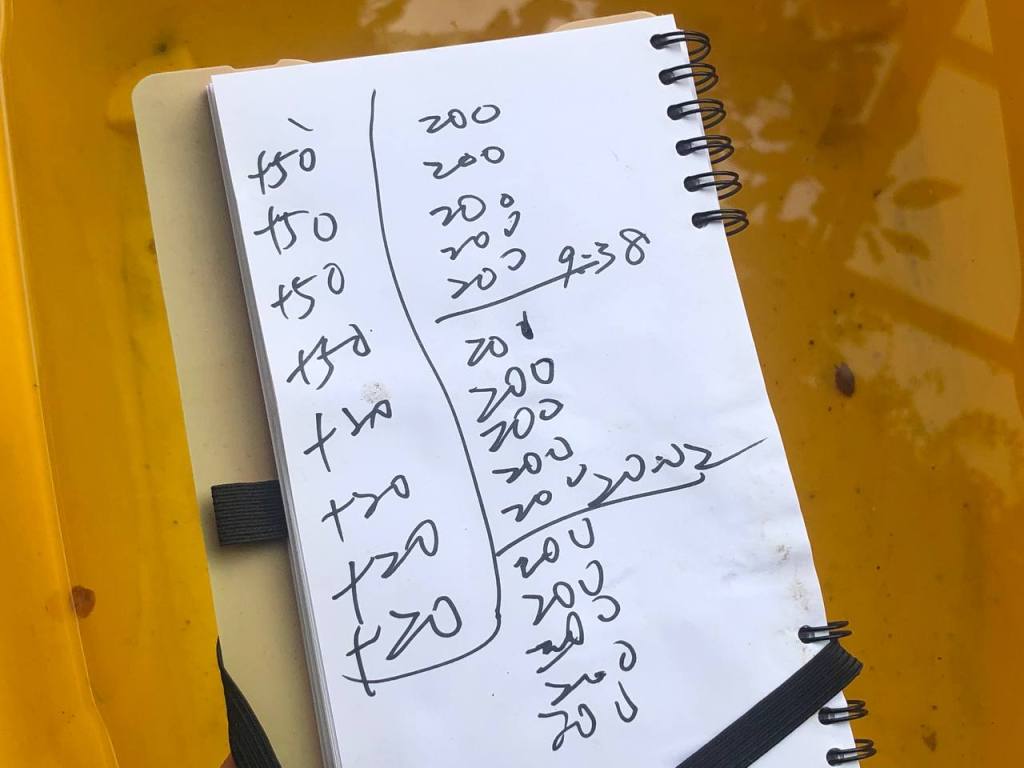 +50
+50
+50
+50
+20
+20
+20
+20
200
200
200
200
200 9:38
200
200
200
200
200 20:02
200
200
200
200
200